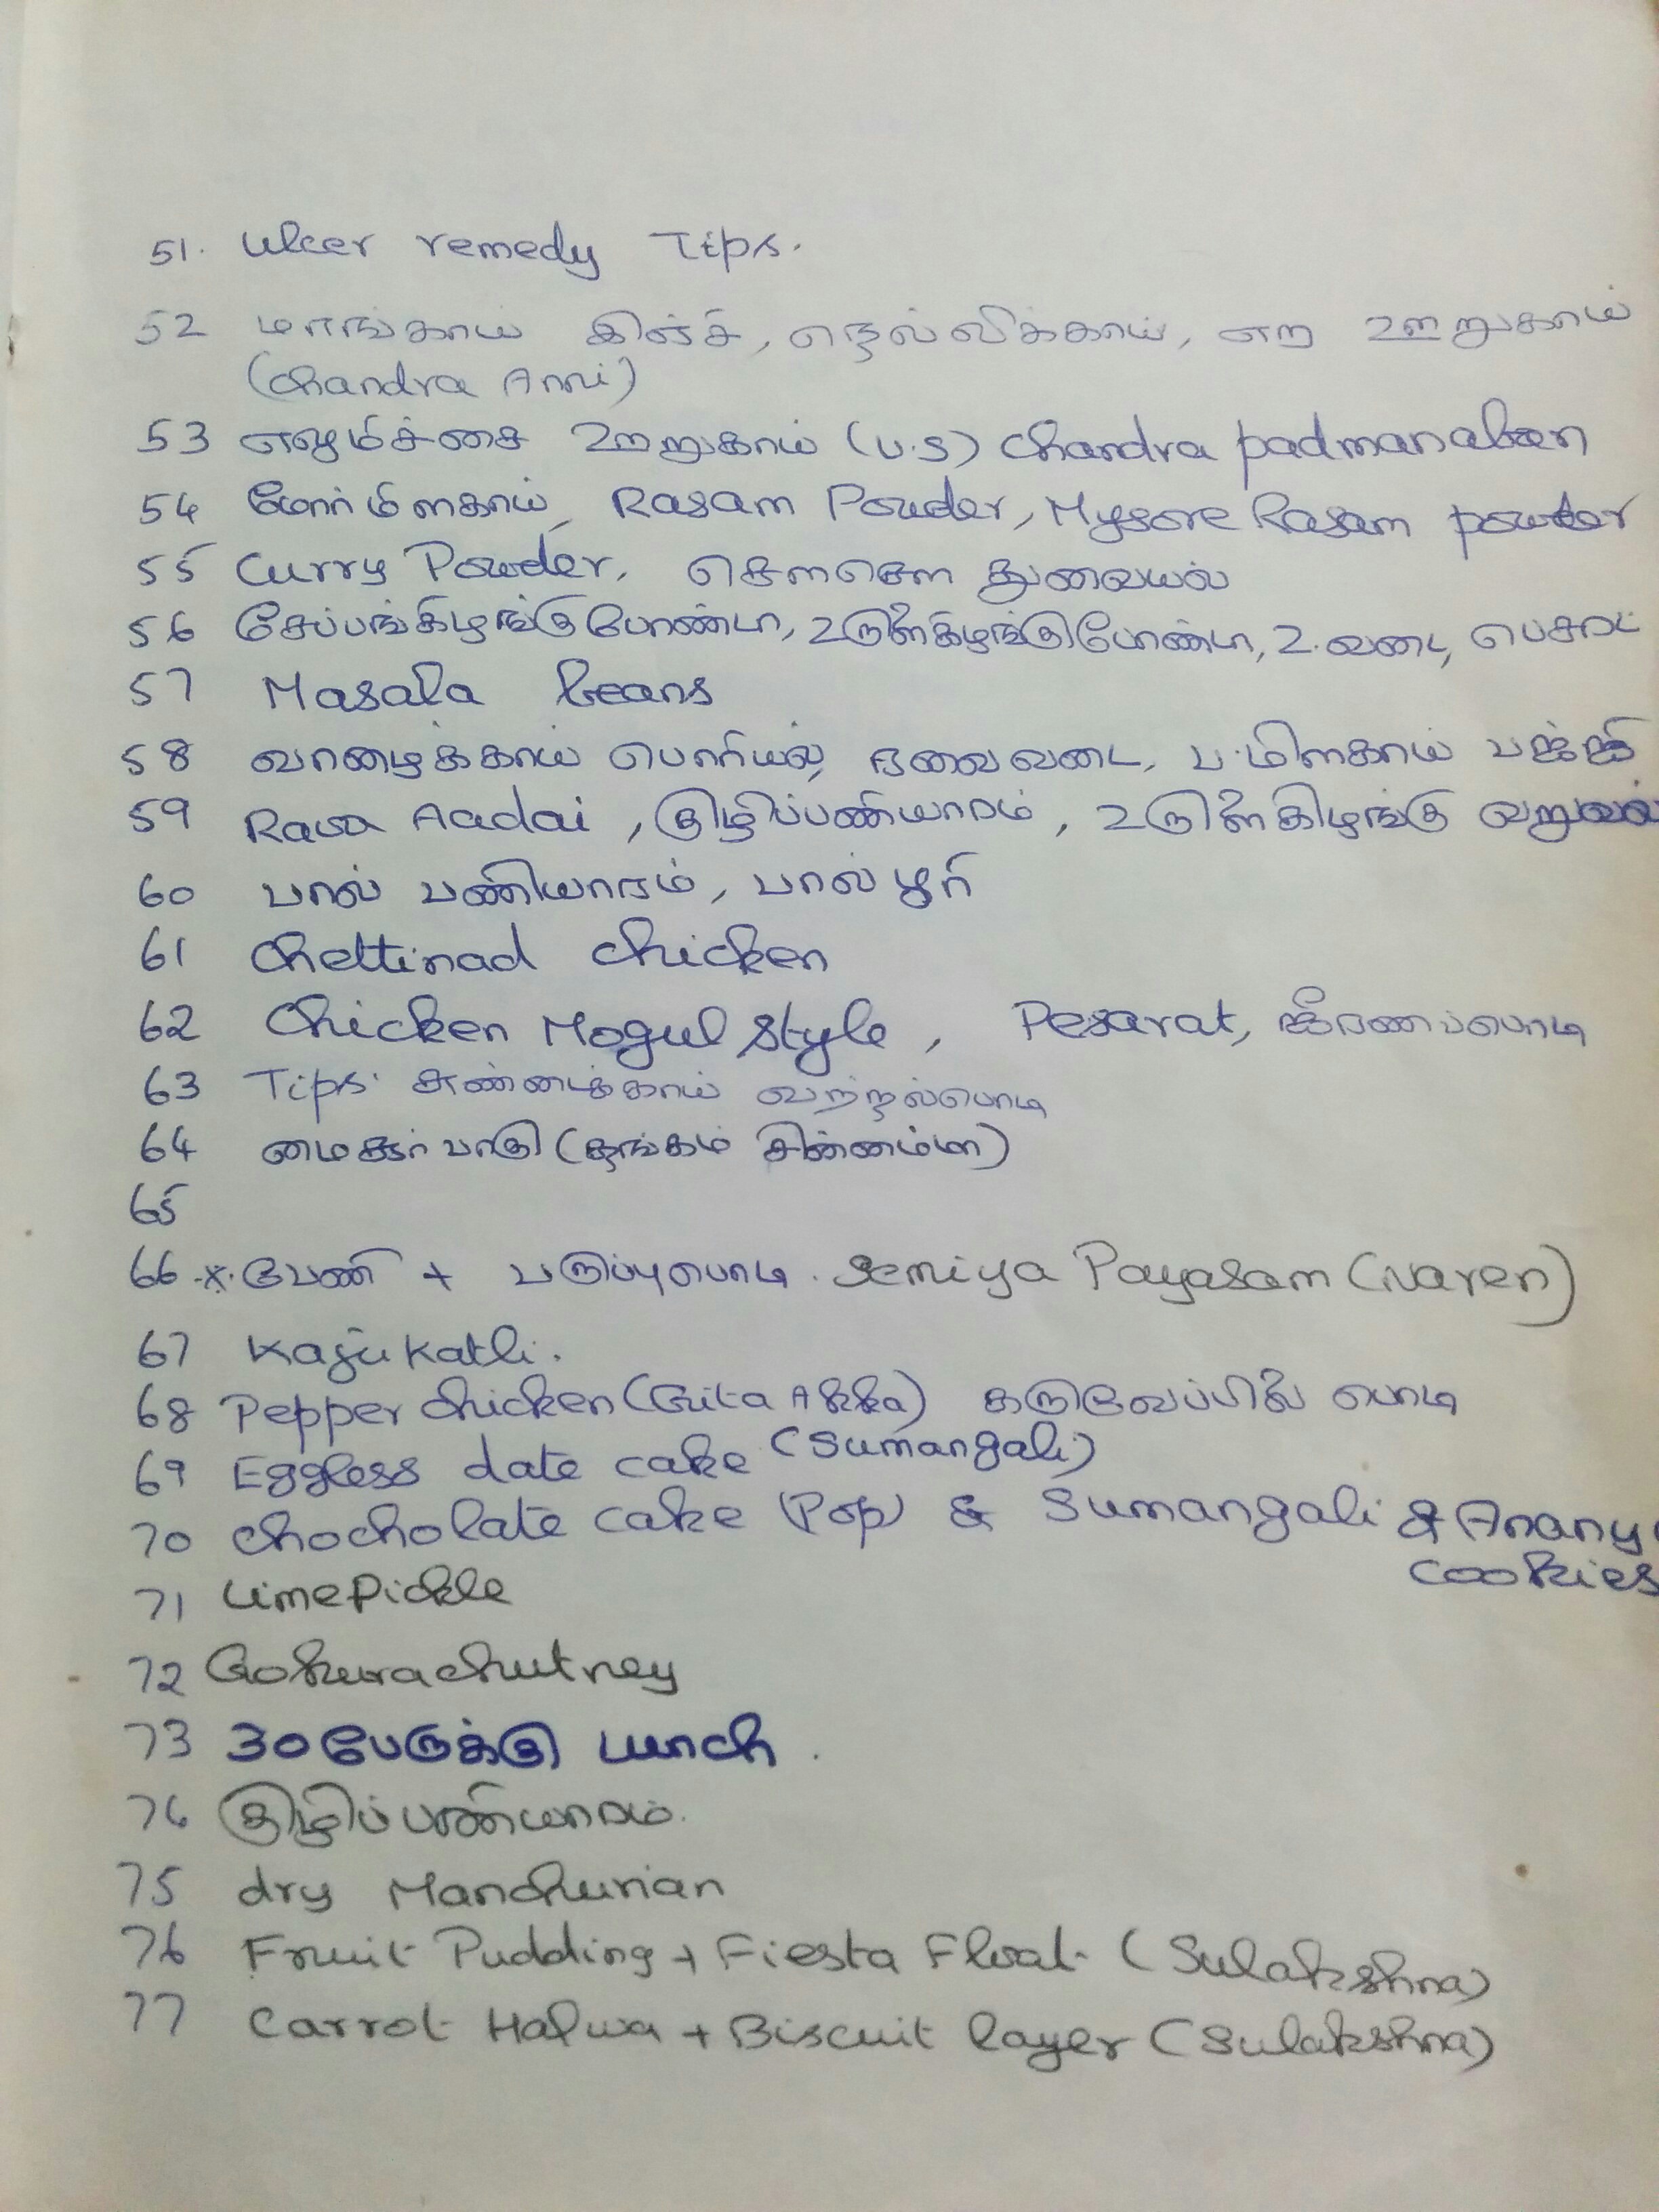 51. Ulcer remedy Tips.
52 மாங்காய் இஞ்சி, நெல்லிக்காய், ஊறுகாய்
(Chandra Anni)
53 எலுமிச்சை ஊறுகாய் (U.S) Chandra padmanaban
54 மோர் மிளகாய், Rasam Powder, Mysore Rasam powder
55 Curry Powder, சௌசௌ துவையல்
56 சேப்பங்கிழங்கு போண்டா, உருளைகிழங்கு போண்டா, உ.வடை, பெசரட்
57 Masala beans
58 வாழைக்காய் பொரியல், ரவை வடை, ப.மிளகாய் பஜ்ஜி
59 Rava Aadai, குழிப்பணியாரம், உருளைகிழங்கு வறுவல்
60 பால் பணியாரம், பால் பூரி
61 Chettinad chicken
62 Chicken Mogul Style, Pesarat, ஜீரணப்பொடி
63 Tips. சுண்டைக்காய் வற்றல்பொடி
64 மைசூர் பாகு (தங்கம் சின்னம்மா)
65
66 *. பேணி + பருப்புபொடி. Semiya Payasam (Naren)
67 Kaju Katli.
68 Pepper chicken (Gita Akka) கருவேப்பிலை பொடி
69 Eggless date cake (Sumangali)
70 Chocholate cake (Pop) & Sumangali & Anany
cookies
71 Lime Pickle
72 Gokura chutney
73 30 பேருக்கு Lunch.
74 குழிப்பணியாரம்.
75 dry Manchurian
76 Fruit Pudding + Fiesta Float (Sulakshna)
77 Carrot Halwa + Biscuit layer (Sulakshna)